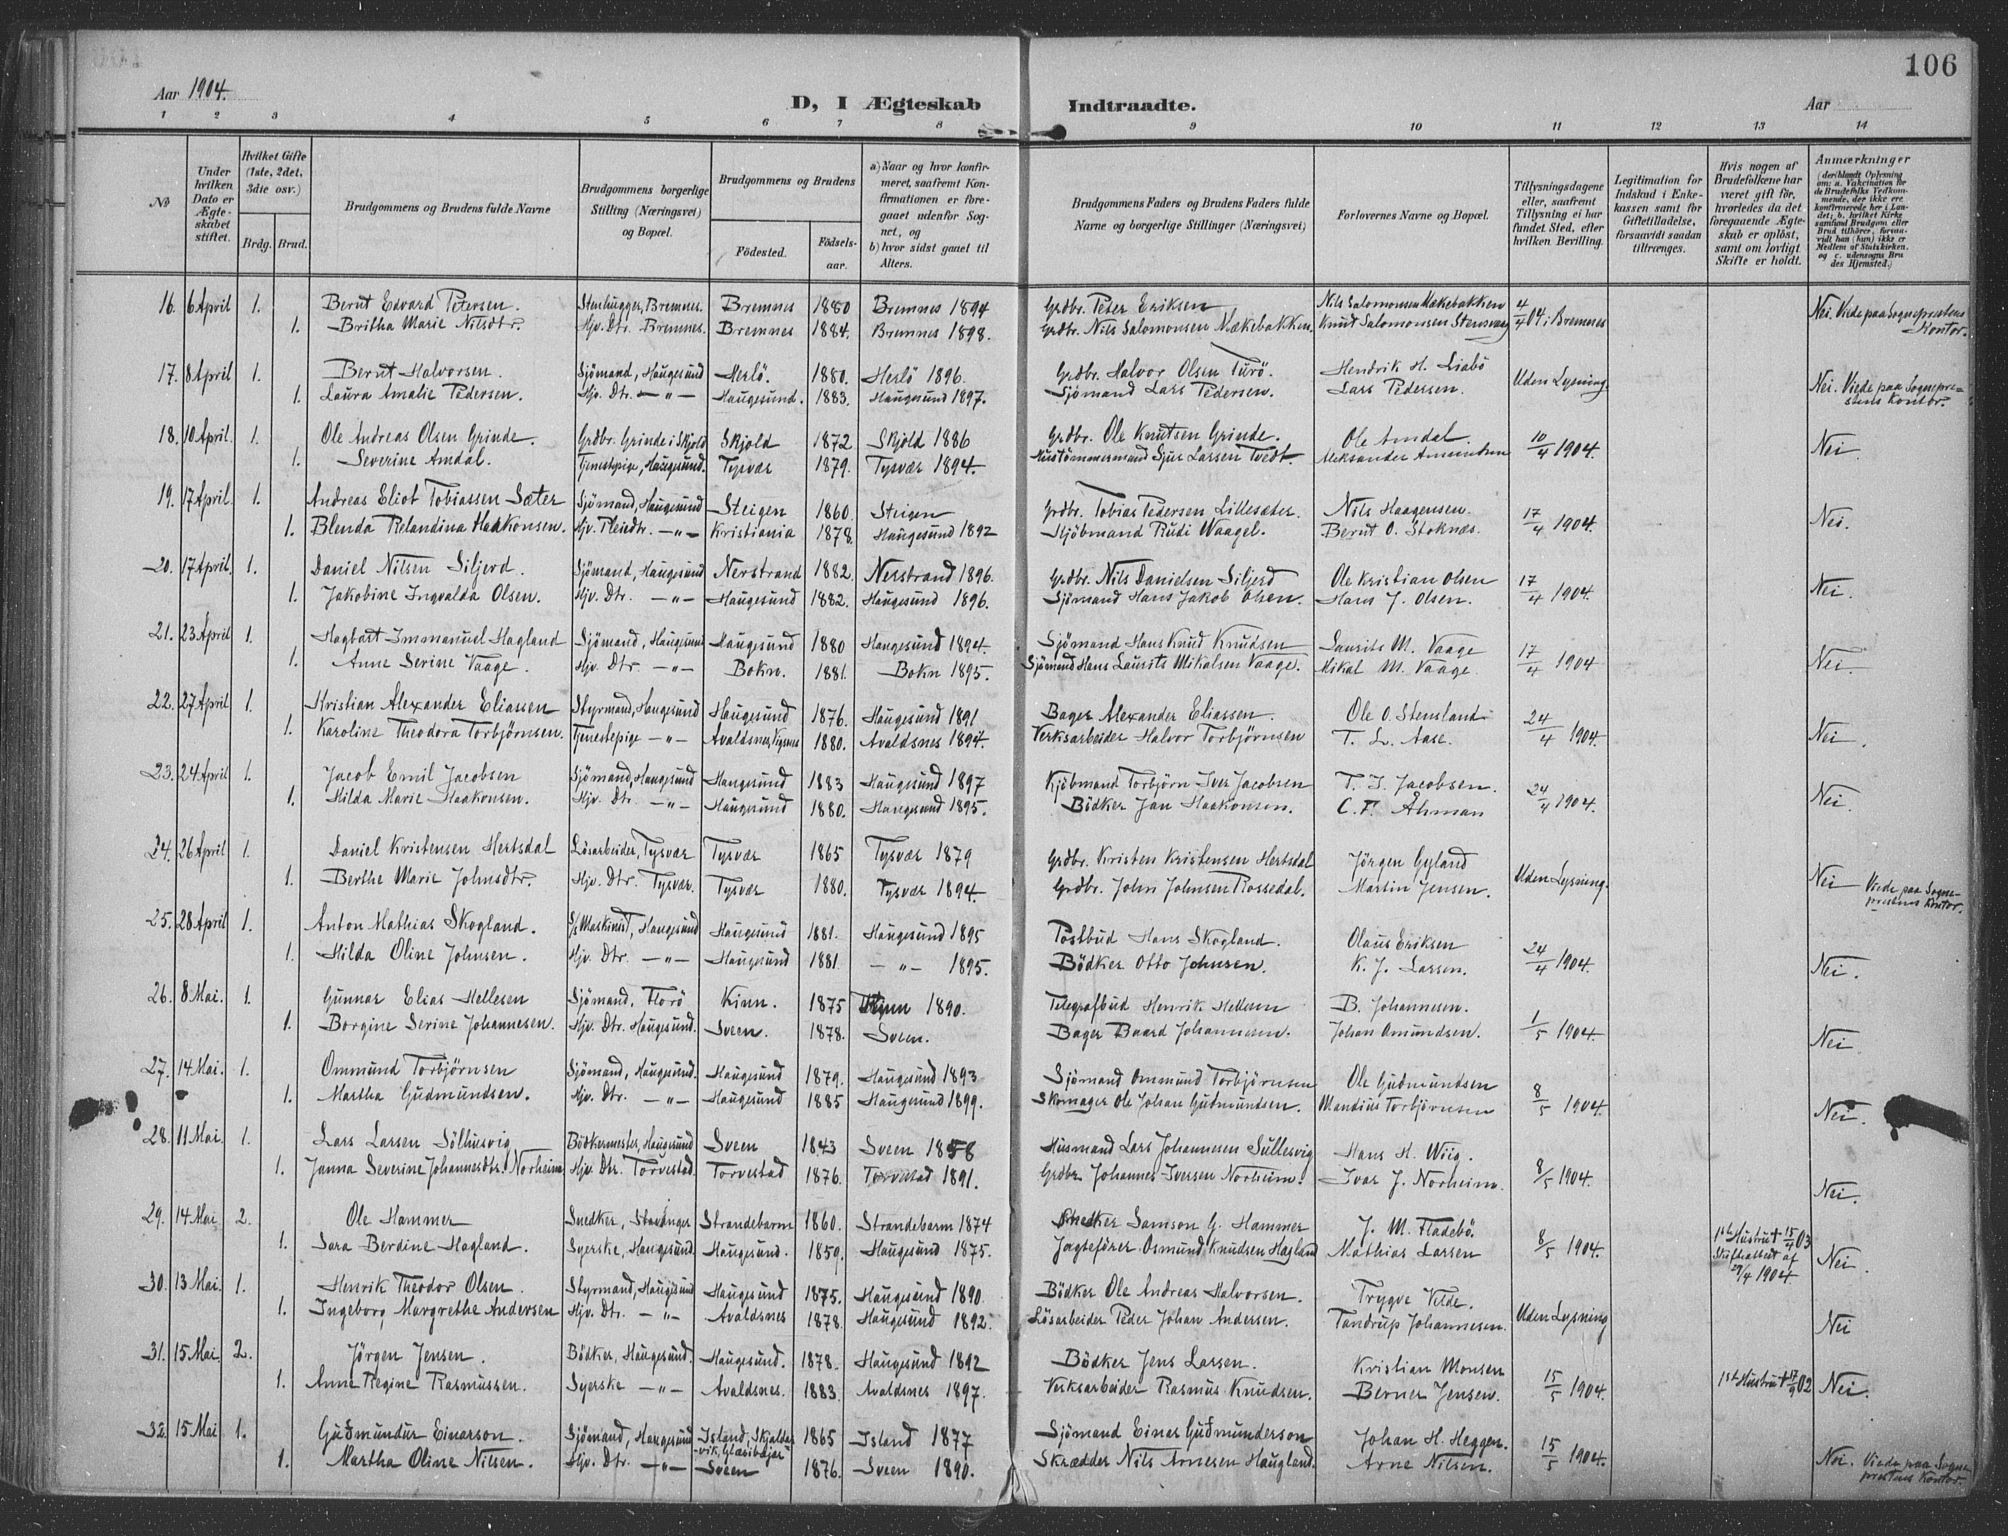 106
Aar 1904.
D, I Ægteskab Indtraadte.
Aar
1 2 3 4 5 6 7 8 9 10 11 12 13 14
No
Under hvilken Dato er Ægteskabet stiftet.
Hvilket Gifte (1ste, 2det, 3die osv.)
Brdg. Brud.
Brudgommens og Brudens fulde Navne
Brudgommens borgerlige Stilling (Næringsvei) og Bopæl.
Brudgommens og Brudens
Fødested. Fødselsaar.
a) Naar og hvor konfirmeret, saafremt Konfirmationen er foregaaet udenfor Sognet, og
b) hvor sidst gaaet til Alters.
Brudgommens Faders og Brudens Faders fulde Navne og borgerlige Stillinger (Næringsvei)
Forlovernes Navne og Bopæl.
Tillysningsdagene eller, saafremt Tillysning ei har fundet Sted, efter hvilken Bevilling.
Legitimation for Indskud i Enkekassen samt for Giftetilladelse, forsaavidt saadan tiltrænges.
Hvis nogen af Brudefolkene har været gift før, hvorledes da det foregaaende Ægteskab er opløst, samt om lovligt Skifte er holdt.
Anmærkninger (deriblandt Oplysning om: a. Vakcination for de Brudefolks Vedkommende, der ikke ere konfirmerede her i Landet; b. hvilket Kirkesamfund Brudgom eller Brud tilhører, forsaavidt han (hun) ikke er Medlem af Statskirken, og c. udensogns Brudes Hjemsted.)
16. 6 April 1. Berut Edvard Petersen. Stenhugger, Bremnes. Bremnes 1880 Bremnes 1894 Grdbr. Peder Eriksen Nils Salomonsen Mækebakken 4/4 04 i Bremnes Nei. Viede paa Sogneprestens Kontor.
1. Britha Marie Nilsdtr. Hjv. Dtr. Bremnes. Bremnes 1884. Bremnes 1898. Grdbr. Nils Salomonsen Mækebakken. Knut Salomonsen
17. 8 April 1. Berut Halvorsen. Sjömand, Haugesund Herlö. 1880. Herlö 1896. Grdbr. Halvor Olsen Turö. Hendrik H. Liabö Uden Lysning Nei. Viede paa Sogneprestens Kontor.
1. Laura Amalie Pedersen. Hjv. Dtr. —"— Haugesund. 1883. Haugesund 1897. Sjömand Lars Pedersen. Lars Pedersen.
18. 10 April. 1. Ole Andreas Olsen Grinde. Grdbr. Grinde i Skjold Skjold 1872 Skjold 1886 Grdbr. Ole Knutsen Grinde. Ole Amdal 10/4 1904. Nei.
1. Severine Amdal. Tjenestepige, Haugesund. Tysvær 1879. Tysvær 1894. Hustömmermand Sjur Larsen Tvedt. Aleksander Amundsen
19. 17 April. 1. Andreas Eliot Tobiassen Sæter Sjömand, Haugesund Steigen 1860. Steigen Grdbr. Tobias Pedersen Lillesæter. Nils Haagensen. 17/4 1904. Nei.
1. Blenda Relandina Haakonsen. Hjv. Pleiedtr. —"— Kristiania 1878. Haugesund 1892 Kjöbmand Rudi Waagel. Berut O. Stoknæs.
20. 17 April. 1. Daniel Nilsen Siljerd. Sjömand, Haugesund Nerstrand 1882. Nerstrand 1896. Grdbr. Nils Danielsen Siljerd Ole Kristian Olsen 17/4 1904. Nei.
1. Jakobine Ingvalda Olsen. Hjv. Dtr. —"— Haugesund 1882. Haugesund 1896. Sjömand Hans Jakob Olsen. Hans J. Olsen.
21. 23 April 1. Hagbart Immanuel Hagland Sjömand, Haugesund Haugesund 1880 Haugesund 1894. Sjömand Hans Knud Knudsen Laurits M. Vaage 17/4 1904 Nei.
1. Anne Serine Vaage. Hjv. Dtr. —"— Bokn. 1881. Bokn 1895. Sjömand Hans Laurits Mikalsen Vaage. Mikal M. Vaage.
22. 27 April 1. Kristian Alexander Eliassen Styrmand, Haugesund Haugesund 1876. Haugesund 1891 Bager Alexander Eliassen. Ole O. Stensland 24/4 1904. Nei.
1. Karoline Theodora Torbjörnsen. Tjenestepige —"— Avaldsnes, Vigsnes 1880. Avaldsnes 1894. Verksarbeider Halvor Torbjörnsen T. L. Aase.
23. 24 April 1. Jacob Emil Jacobsen Sjömand, Haugesund Haugesund 1883 Haugesund 1897 Kjöbmand Torbjörn Iver Jacobsen T. I. Jacobsen. 24/4 1904. Nei.
1. Hilda Marie Haakonsen. Hjv. Dtr —"— Haugesund 1880. Haugesund 1895. Bödker Jan Haakonsen. C. F. Åhman
24. 26 April 1. Daniel Kristensen Hertsdal Lösarbeider, Tysvær Tysvær 1865 Tysvær 1879 Grdbr. Kristen Kristensen Hertsdal Jörgen Gyland Uden Lysning. Nei Viede paa Sogneprestens Kontor.
1. Berthe Marie Johnsdtr. Hjv. Dtr. Tysvær. Tysvær 1880. Tysvær 1894. Grdbr. John Johnsen Rossedal. Martin Jensen.
25. 28 April 1. Anton Mathias Skogland. S/s Maskinist, Haugesund Haugesund 1881. Haugesund 1895 Postbud Hans Skogland. Olaus Eriksen 24/4 1904. Nei.
1. Hilda Oline Johnsen. Hjv. Dtr. —"— Haugesund 1881 —"— 1895. Bödker Otto Johnsen. K. J. Larsen.
26. 8 Mai. 1. Gunnar Elias Hellesen Sjömand, Florö Kinn. 1875 1890. Telegrafbud Henrik Hellesen B. Johannesen. 1/5 1904. Nei.
1. Borgine Serine Johannesen. Hjv. Dtr. Haugesund. Sveen. 1878. Sveen. Bager Baard Johannesen. Johan Amundsen.
27. 14 Mai. 1. Ommund Torbjörnsen Sjömand, Haugesund. Haugesund 1879. Haugesund 1893 Sjömand Ommund Torbjörnsen Ole Gudmundsen 8/5 1904. Nei.
1. Martha Gudmundsen. Hjv. Dtr. —"— Haugesund 1885 Haugesund 1899. Skomager Ole Johan Gudmundsen. Mandius Torbjörnsen
28. 11 Mai. 1. Lars Larsen Söllusvig Bödkermester, Haugesund Sveen 1843 Sveen 1858 Husmand Lars Johannesen Sullesvig Hans H. Wiig. 8/5 1904. Nei.
1. Janna Severine Johannesdtr. Norheim. Hjv. Dtr. Torvestad. Torvestad 1876. Torvestad 1891. Grdbr Johannes Iversen Norheim. Ivar J. Norheim.
29. 14 Mai 2. Ole Hammer Snedker, Stavanger Strandebarm 1860. Strandebarm 1874 Snedker Samson G. Hammer J. M. Fladebö. 8/5 1904. 1ste Hustru † 15/4 03 Skifteattest af 29/4 1904 Nei
1. Sara Berdine Hagland. Syerske, Haugesund. Haugesund. 1859. Haugesund 1875. Jagtefører Osmund Knudsen Hagland Mathias Larsen
30. 13 Mai. 1. Henrik Theodor Olsen. Styrmand, Haugesund Haugesund 1875. Haugesund 1890. Bödker Ole Andreas Halvorsen. Trygve Velde. Uden Lysning Nei
1. Ingeborg Margrethe Andersen Hjv. Dtr. —"— Avaldsnes 1878. Haugesund 1892. Lösarbeider Peder Johan Andersen. Tandrup Johannesen.
31. 15 Mai 2. Jörgen Jensen. Bödker, Haugesund. Haugesund. 1878. Haugesund 1892 Bödker Jens Larsen. Kristian Monsen 15/5 1904. 1ste Hustru † 17/9 02 Nei.
1. Anne Regine Rasmussen. Syerske —"— Avaldsnes. 1883. Avaldsnes 1897. Verksarbeider Rasmus Knudsen. Berner Jensen.
32. 15 Mai 1. Guðmundur Einarson. Sjömand, Haugesund Island, Skjaldarvik, Glæsibæjar 1865 Island 1877 Sjömand Einar Guðmunderson Johan H. Heggen. 15/5 1904. Nei. Viede paa Sogneprestens Kontor.
1. Martha Oline Nilsen. Hjv. Dtr. —"— Sveen 1876. Sveen 1890. Skrædder Nils Arnesen Haugland. Arne Nilsen.